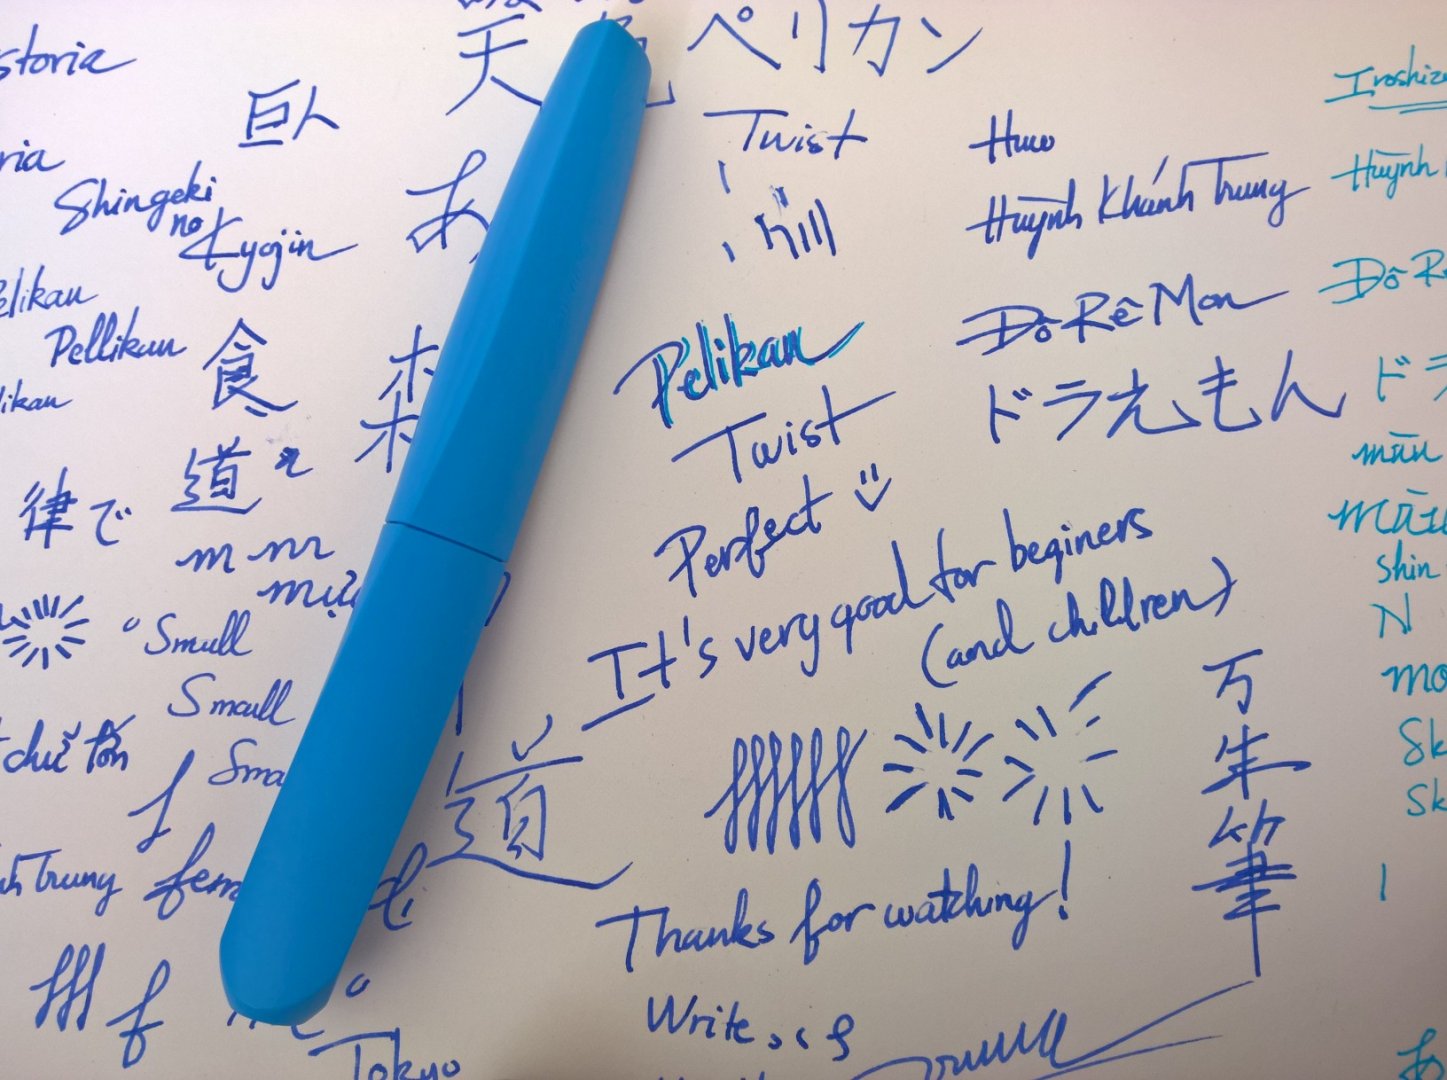 storia
巨人
ria
Shingeki
no
Kyojin
elikan
Pellikan
likan
食
道
律で
m
Small
Small
Sma
chữ tốn
f
Trung
fem
f
Tokyo
天
ペリカン
あ
Twist
Pelikan
Twist
Perfect
It's very good for beginers
(and children)
道
Thanks for watching!
Write
Huỳnh Khánh Trung
Đô Rê Mon
ドラえもん
万
年
筆
Iroshizu
Huỳnh
Đô R
ド
màu
shin
N
mo
Sk
Sk
あ